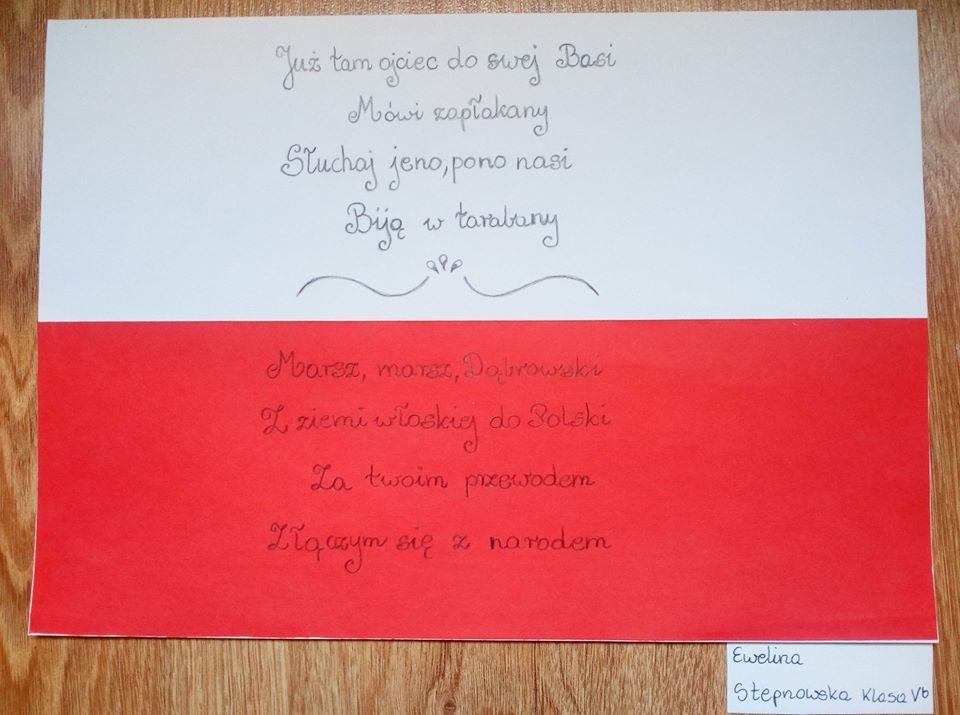 Już tam ojciec do swej Basi
Mówi zapłakany
Słuchaj jeno, pono nasi
Biją w tarabany
Marsz, marsz, Dąbrowski
Z ziemi włoskiej do Polski
Za twoim przewodem
Złączym się z narodem
Ewelina
Stepnowska Klasa Vb